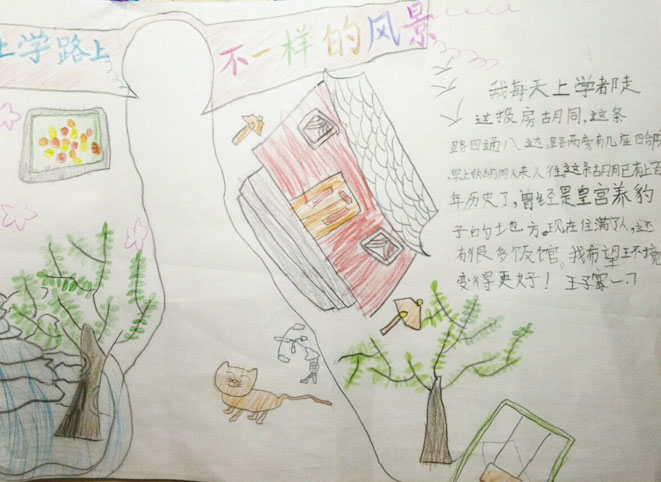 上学路上
不一样的风景
我每天上学都走
过报房胡同,这条
路四通八达,路两旁有几座四合院
早上的胡同人来人往这条胡同已有上百
年历史了,曾经是皇宫养豹
子的地方。现在住满了人,还
有很多饭馆。我希望环境
变得更好! 王子 一.7